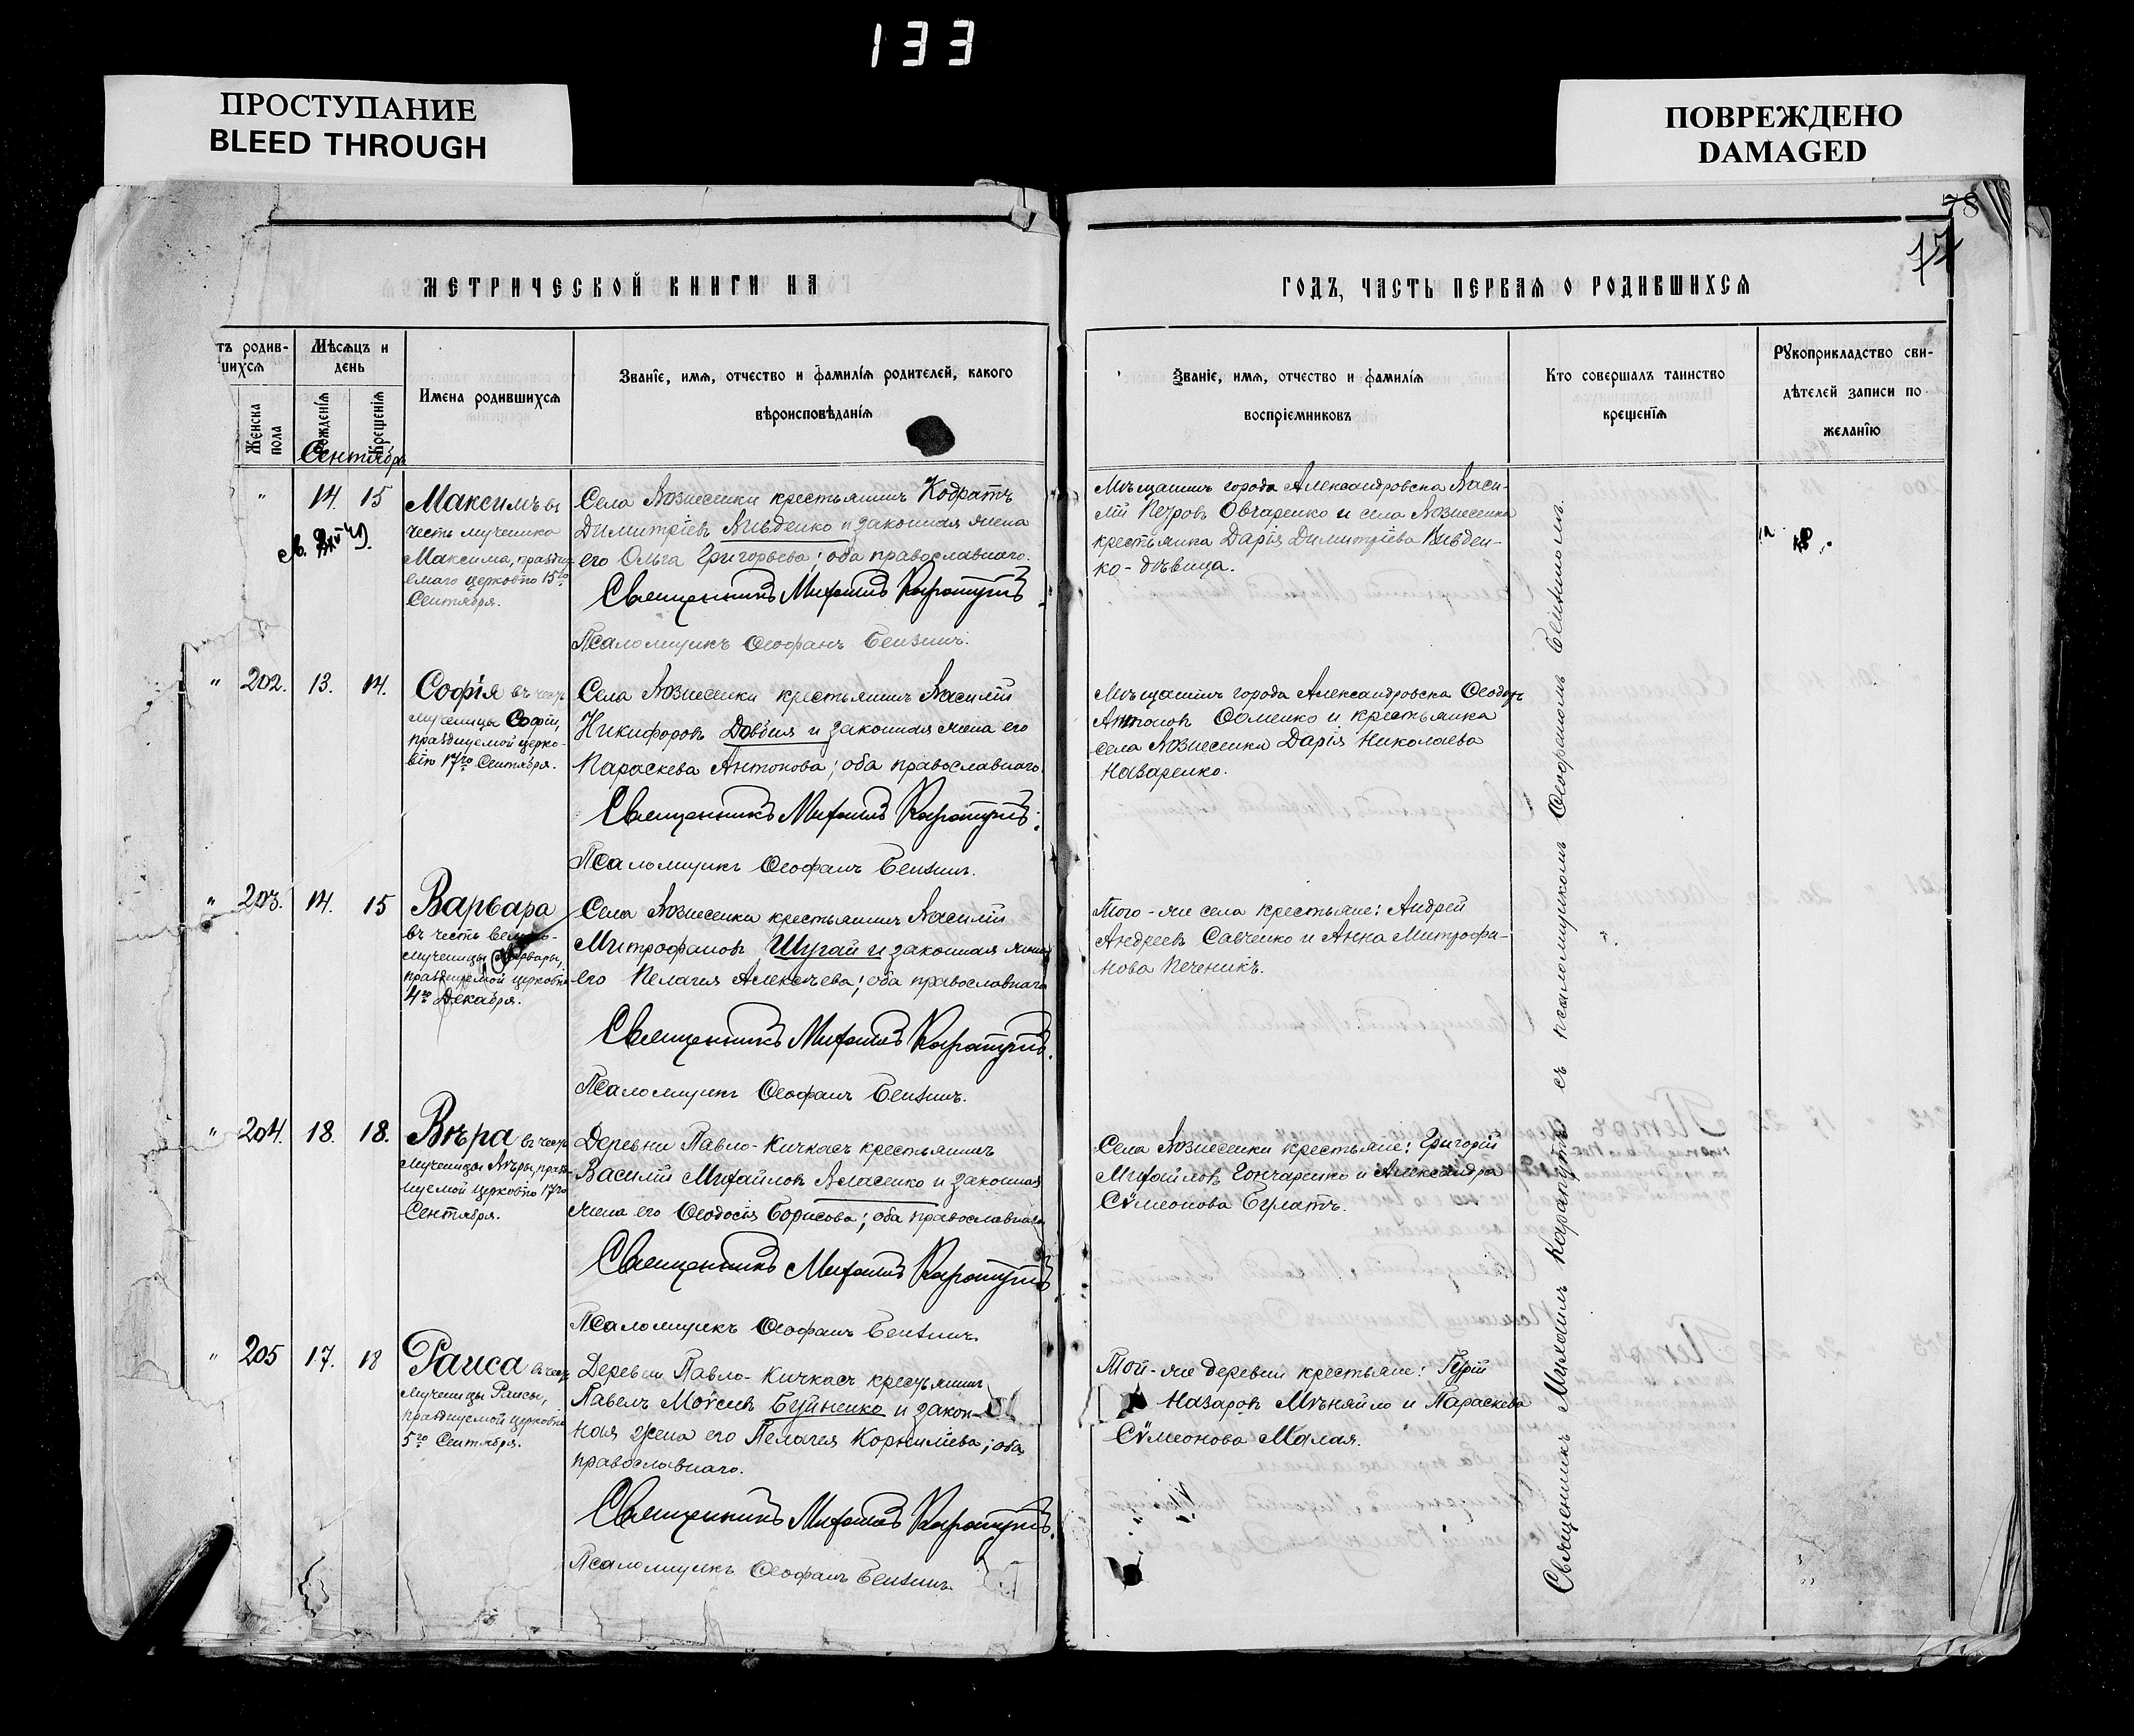 133
ПРОСТУПАНИЕ
BLEED THROUGH
ПОВРЕЖДЕНО
DAMAGED
78
77
МЕТРИЧЕСКОЙ КНИГИ НА
ГОДЪ, ЧАСТЬ ПЕРВАЯ О РОДИВШИХСЯ
тъ родив-
шихся
Женска
пола
Мѣсяцъ и
день
Рожденія
Крещенія
Имена родившихся
Званіе, имя, отчество и фамилія родителей, какого
вѣроисповѣданія
Званіе, имя, отчество и фамилія
воспріемниковъ
Кто совершалъ таинство
крещенія
Рукоприкладство сви-
дѣтелей записи по
желанію
Сентябрь
" 14. 15
Максимъ въ
честь мученика
Максима, праздну
емаго церковію 15го
Сентября.
Села Вознесенки крестьянинъ Кодратъ
Димитріевъ Вивденко и законная жена
его Ольга Григорьева; оба православнаго.
Священникъ Михаилъ Карапутъ
Псаломщикъ Ѳеофанъ
Мѣщанинъ города Александровска Васи-
лій Петровъ Овчаренко и села Вознесенки
крестьянка Дарія Димитріева Вивден-
ко - дѣвица.
" 202. 13. 14.
Софія въ честь
мученицы Софіи,
празднуемой церко-
вію 17го Сентября.
Села Вознесенки крестьянинъ Василій
Никифоровъ Довбня и законная жена его
Параскева Антонова; оба православнаго.
Священникъ Михаилъ Карапутъ.
Псаломщикъ Ѳеофанъ
Мѣщанинъ города Александровска Ѳеодоръ
Антоновъ и крестьянка
села Вознесенки Дарія Николаева
Назаренко.
" 203. 14. 15
Варвара
въ честь велико-
мученицы Варвары,
празднуемой церковію
4го Декабря.
Села Вознесенки крестьянинъ Василій
Митрофановъ Шугай и законная жена
его Пелагея Алексѣева; оба православнаго
Священникъ Михаилъ Карапутъ.
Псаломщикъ Ѳеофанъ
Того-же села крестьяне: Андрей
Андреевъ Савченко и Анна Митрофа-
нова Печеникъ.
" 204. 18. 18.
Вѣра въ честь
мученицы Вѣры, празд-
нуемой церковію 17го
Сентября.
Деревни Павло-Кичкасъ крестьянинъ
Василій Михайловъ Власенко и законная
жена его Ѳеодосія Борисова; оба православнаго
Священникъ Михаилъ Карапутъ
Псаломщикъ Ѳеофанъ
Села Вознесенки крестьяне: Григорій
Михайловъ Гончаренко и Александра
Сѵмеонова Булатъ.
" 205 17. 18
Раиса въ честь
мученицы Раисы,
празднуемой церковію
5го Сентября.
Деревни Павло-Кичкасъ крестьянинъ
Павелъ Моѵсеевъ Буйненко и закон-
ная жена его Пелагея Корнилiева; оба
православнаго.
Священникъ Михаилъ Карапутъ.
Псаломщикъ Ѳеофанъ
Той-же деревни крестьяне: Гурій
Назаровъ Мѣняйло и Параскева
Сѵмеонова Малая.
Священникъ Михаилъ Карапутъ съ псаломщикомъ Ѳеофаномъ